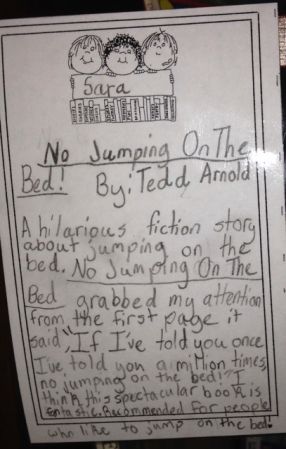 Sara
No Jumping On The
Bed! By: Tedd Arnold
A hilarious fiction story
about jumping on the
bed. No Jumping On The
Bed grabbed my attention
from the first page it
said, "If I've told you once
I've told you a million times,
no jumping on the bed!" I
think this spectacular book is
fantastic. Recommended for people
who like to jump on the bed.